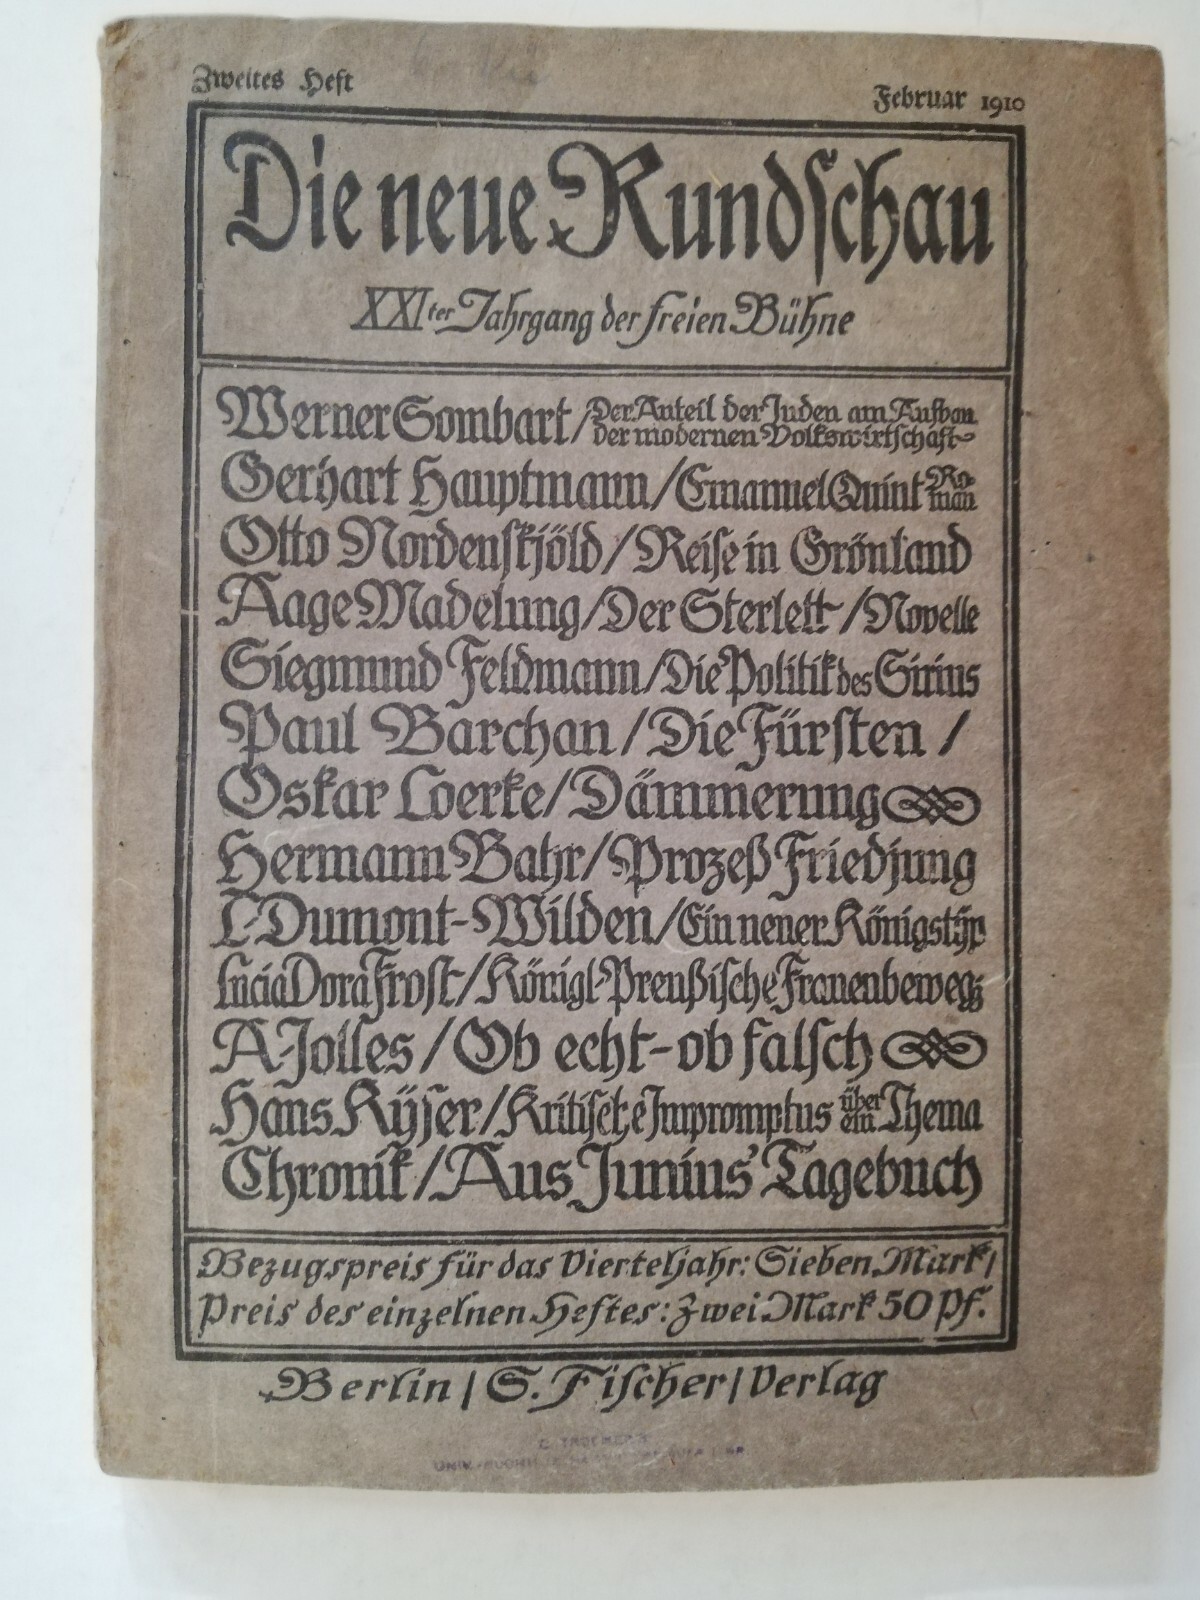 Zweites Heft
Februar 1910
Die neue Rundſchau
XXIter Jahrgang der freien Bühne
Werner Sombart / Der Anteil der Juden am Aufbau
der modernen Volkswirtſchaft
Gerhart Hauptmann / Emanuel Quint Roman
Otto Nordenſkjöld / Reiſe in Grönland
Aage Madelung / Der Sterlett / Novelle
Siegmund Feldmann / Die Politik des Sirius
Paul Barchan / Die Fürſten /
Oskar Loerke / Dämmerung
Hermann Bahr / Prozeß Friedjung
L-Dumont-Wilden / Ein neuer Königstÿp
Lucia Dora Froſt / Königl-Preußiſche Frauenbeweg
A-Jolles / Ob echt-ob falſch
Hans Kÿſer / Kritiſche Impromptus über ein Thema
Chronik / Aus Junius' Tagebuch
Bezugspreis für das Vierteljahr: Sieben Mark /
Preis des einzelnen Heftes: Zwei Mark 50 Pf.
Berlin / S. Fiſcher / Verlag